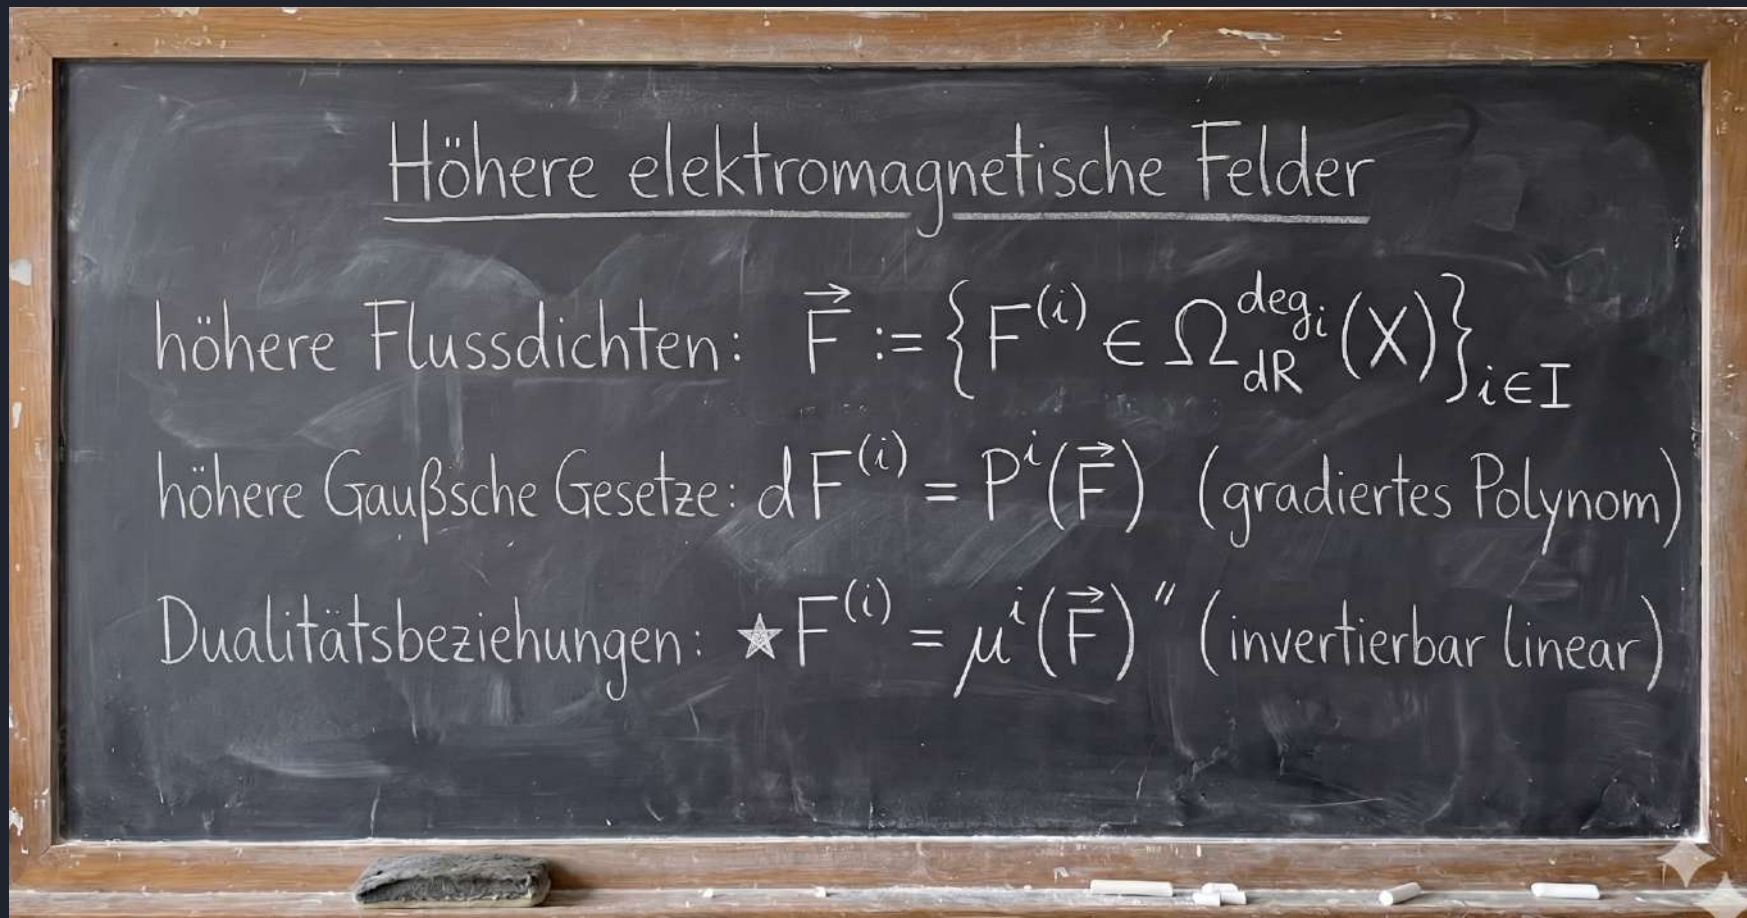 Höhere elektromagnetische Felder
höhere Flussdichten: F⃗ := {F⁽ⁱ⁾ ∈ Ω_dR^{deg_i}(X)}_{i∈I}
höhere Gaußsche Gesetze: dF⁽ⁱ⁾ = Pⁱ(F⃗) (gradiertes Polynom)
Dualitätsbeziehungen: ★F⁽ⁱ⁾ = μⁱ(F⃗)" (invertierbar linear)